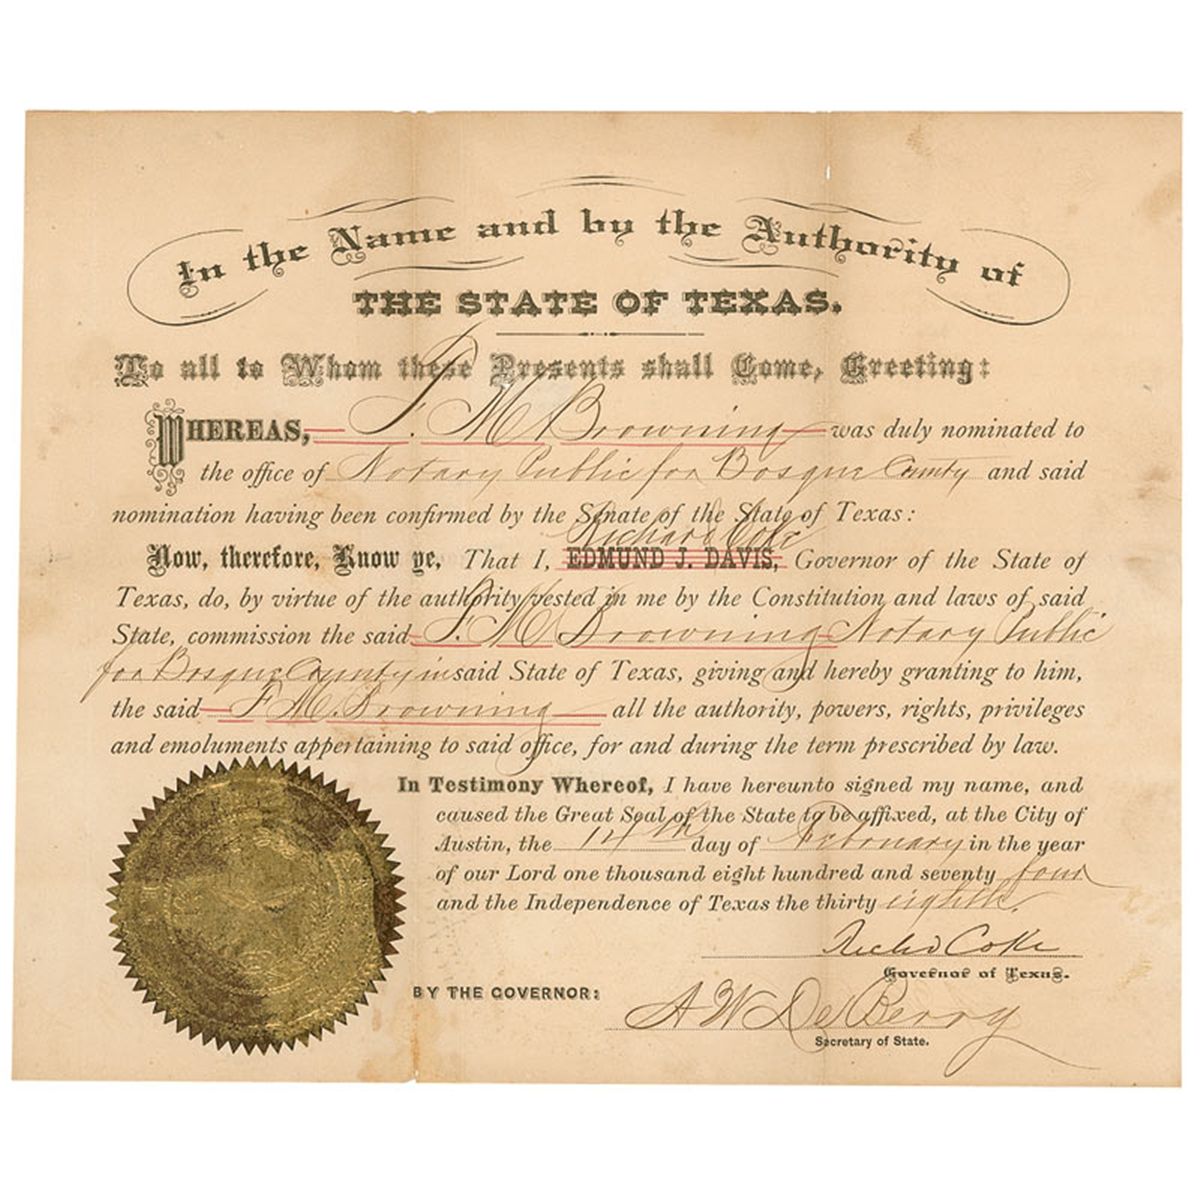 In the Name and by the Authority of
THE STATE OF TEXAS.
To all to Whom these Presents shall Come, Greeting:
WHEREAS, F. M. Browning was duly nominated to
the office of Notary Public for Bosque County and said
nomination having been confirmed by the Senate of the State of Texas:
Richard Coke
Now, therefore, Know ye, That I, EDMUND J. DAVIS, Governor of the State of
Texas, do, by virtue of the authority vested in me by the Constitution and laws of said
State, commission the said F. M. Browning Notary Public
for Bosque County in said State of Texas, giving and hereby granting to him,
the said F. M. Browning all the authority, powers, rights, privileges
and emoluments appertaining to said office, for and during the term prescribed by law.
In Testimony Whereof, I have hereunto signed my name, and
caused the Great Seal of the State to be affixed, at the City of
Austin, the 14th day of February in the year
of our Lord one thousand eight hundred and seventy four
and the Independence of Texas the thirty eighth.
Richd Coke
Governor of Texas.
BY THE GOVERNOR:
A W DeBerry
Secretary of State.